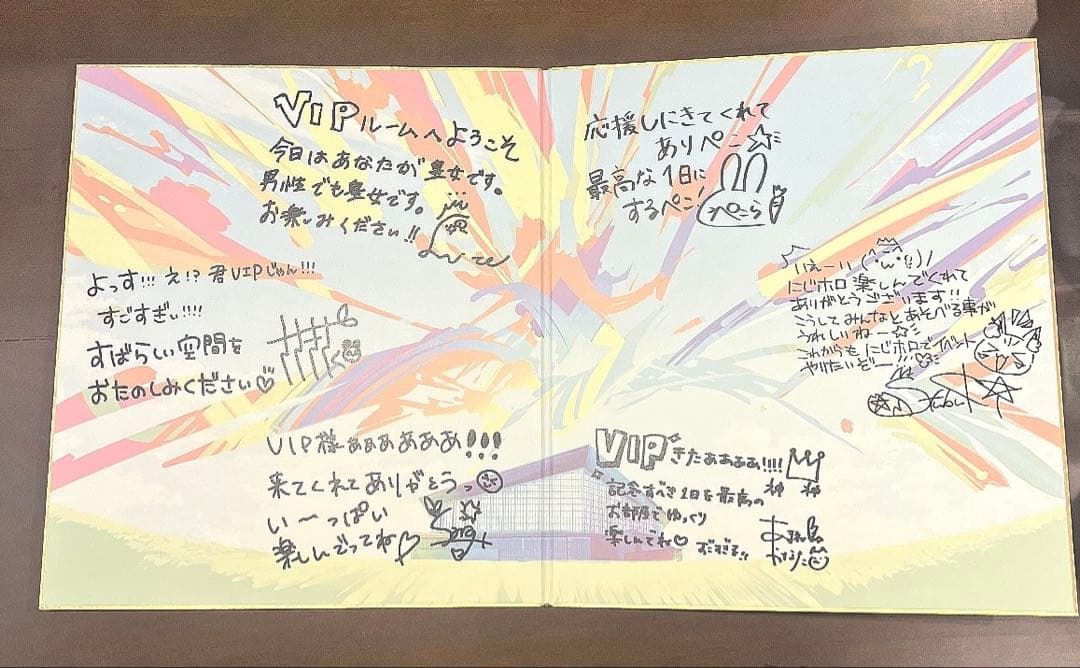 VIPルームへようこそ
今日はあなたが皇女です。
男性でも皇女です。
お楽しみください!!
よっす!!! え!? 君VIPじゃん!!!
すごすぎぃ!!!!
すばらしい空間を
おたのしみください♡
VIP様ぁぁぁあああ!!!
来てくれてありがとうっ
い〜っぱい
楽しんでってね♡
応援しにきてくれて
ありペコ☆
最高な1日に
するペコ!
ぺこら
いぇーい
にじホロ楽しんでくれて
ありがとうございます!!
こうしてみんなとあそべる事が
うれしいねー☆
これからもにじホロで
やりたいぞー!!!♡
VIPきたぁぁぁぁ!!!!
神 神
記念すべき1日を最高の
お部屋でゆっくり
楽しんでね♡